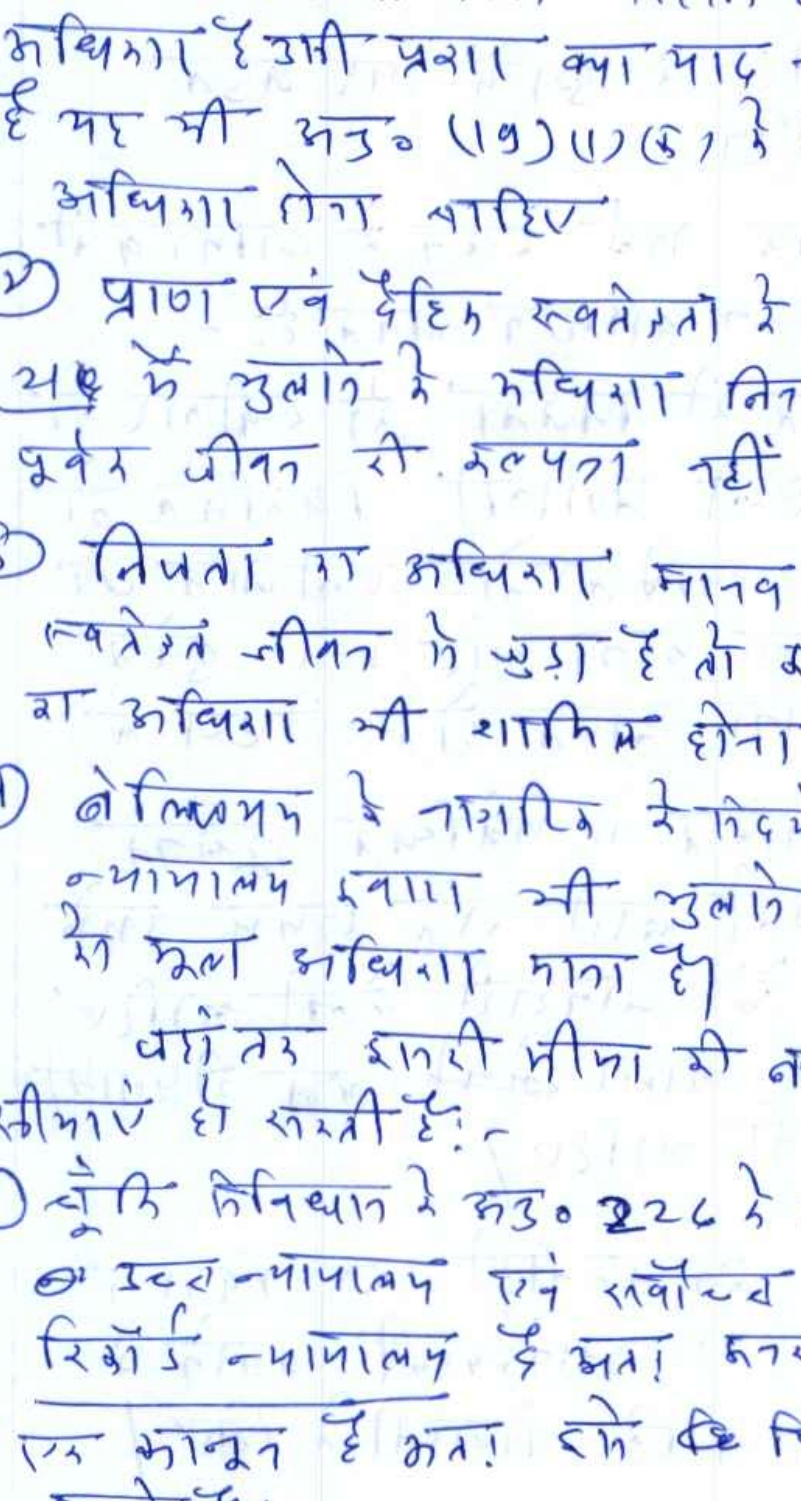 अधिकार है उसी प्रकार क्या याद
है यह भी अनु० (19)(1)(क) के
अधिकार होना चाहिए
② प्राण एवं दैहिक स्वतंत्रता के
21 में भुलाने के अधिकार
पूर्वक जीवन की कल्पना नहीं
निजता का अधिकार मानव
स्वतंत्र जीवन से जुड़ा है तो
का अधिकार भी शामिल होना
के नागरिक के संदर्भ
न्यायालय द्वारा भी भुलाने
को मूल अधिकार माना है।
जहाँ तक इसकी सीमा की
सीमाएं हो सकती है:-
चूँकि संविधान के अनु० 226 के
उच्च न्यायालय एवं सर्वोच्च
रिकॉर्ड न्यायालय है अतः
एक कानून है अतः इसे